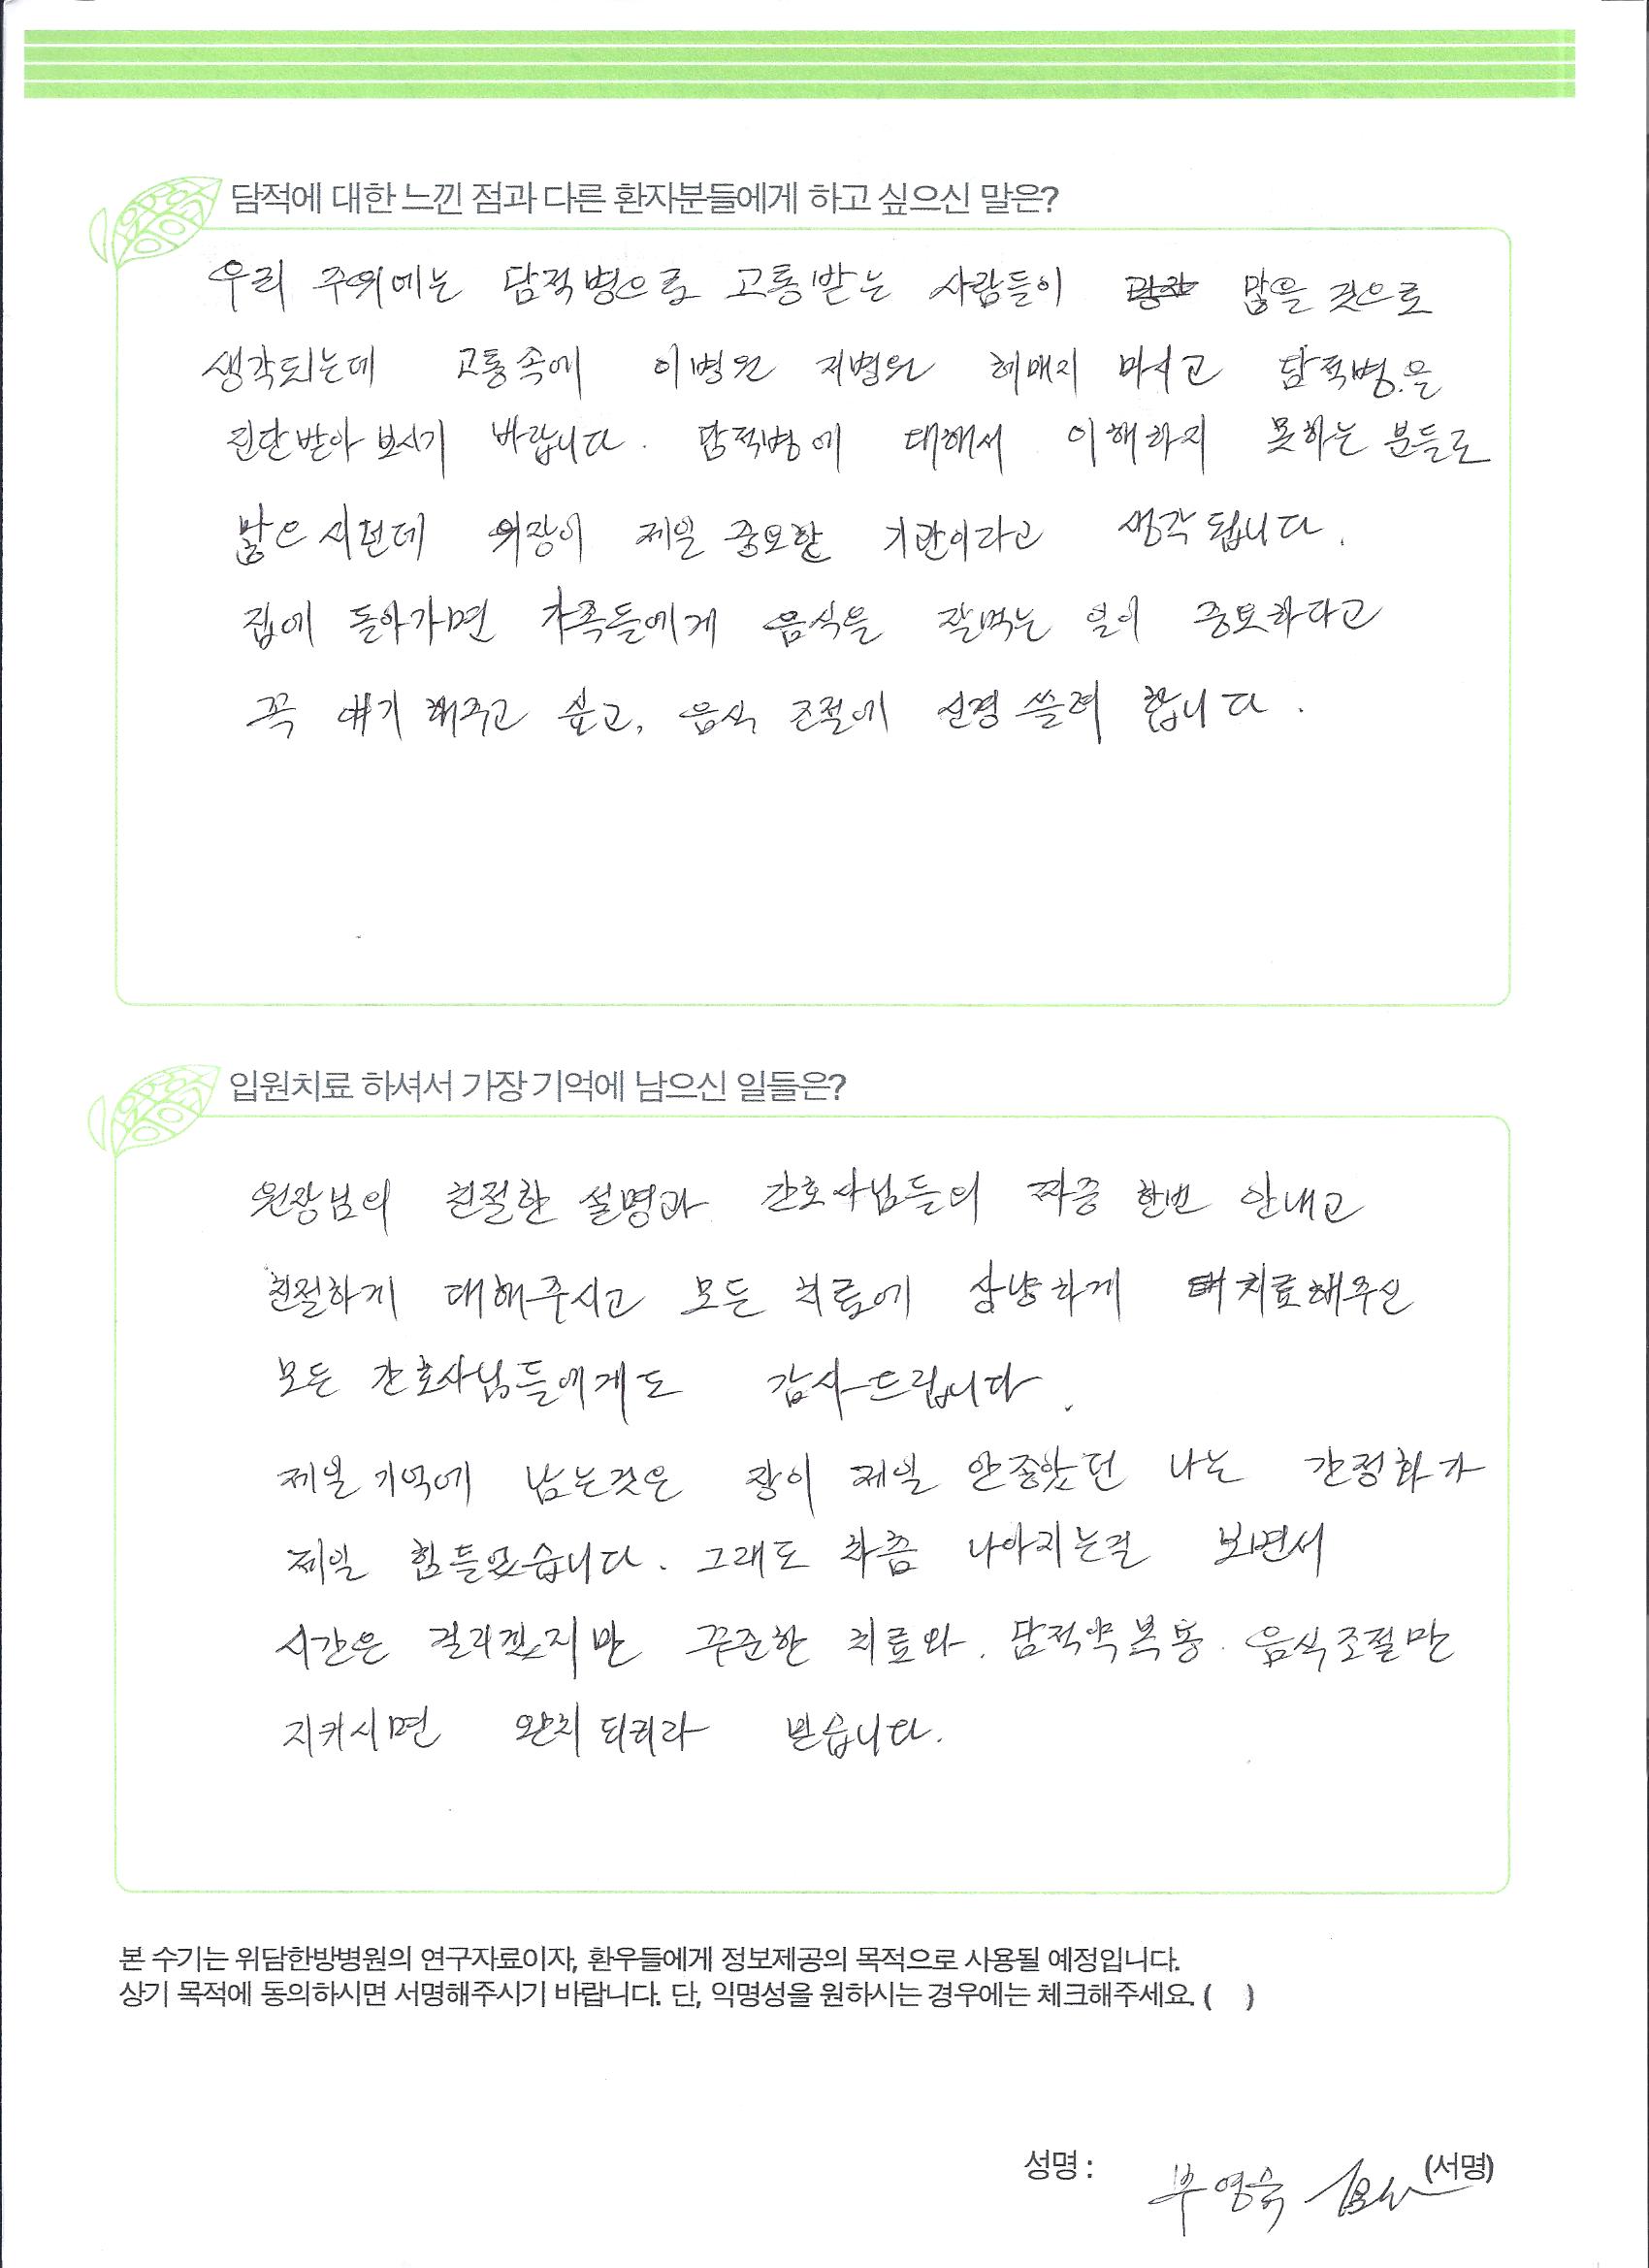 담적에 대한 느낀 점과 다른 환자분들에게 하고 싶으신 말은?
우리 주위에는 담적병으로 고통받는 사람들이 많을 것으로
생각되는데 고통속에 이병원 저병원 헤매지 마시고 담적병을
진단받아 보시기 바랍니다. 담적병에 대해서 이해하지 못하는 분들도
많으시던데 위장이 제일 중요한 기관이라고 생각됩니다.
집에 돌아가면 가족들에게 음식을 잘먹는 일이 중요하다고
꼭 얘기해주고 싶고, 음식 조절에 신경 쓸려 합니다.
입원치료 하셔서 가장 기억에 남으신 일들은?
원장님의 친절한 설명과 간호사님들의 짜증 한번 안내고
친절하게 대해주시고 모든 치료에 상냥하게 치료해주신
모든 간호사님들에게도 감사드립니다.
제일 기억에 남는것은 장이 제일 안좋았던 나는 간정화가
제일 힘들었습니다. 그래도 차츰 나아지는걸 보면서
시간은 걸리겠지만 꾸준한 치료와. 담적약복용. 음식조절만
지켜시면 완치되리라 믿습니다.
본 수기는 위담한방병원의 연구자료이자, 환우들에게 정보제공의 목적으로 사용될 예정입니다.
상기 목적에 동의하시면 서명해주시기 바랍니다. 단, 익명성을 원하시는 경우에는 체크해주세요. ( )
성명 : 부영숙 (서명)